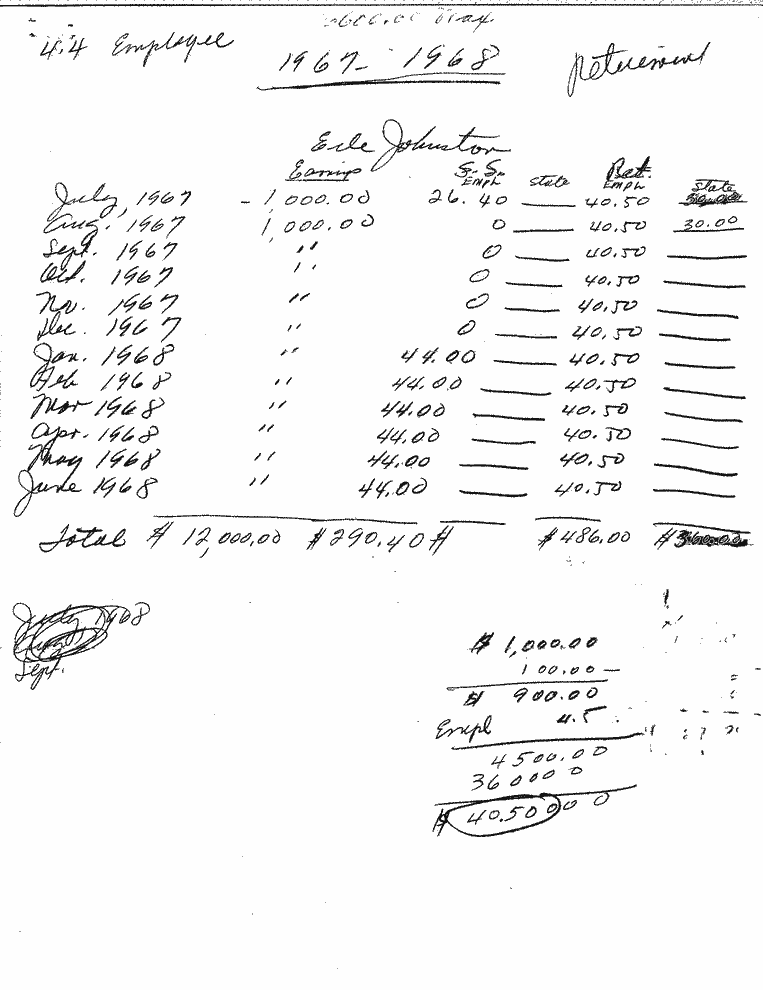 600.00 Max.
4.4 Employee 1967-1968 Retirement
Erle Johnston
Earnings S.S. Empl State Ret. Empl State
July, 1967 - 1,000.00 26.40 40.50
Aug. 1967 1,000.00 0 40.50 30.00
Sept. 1967 " 0 40.50
Oct. 1967 " 0 40.50
Nov. 1967 " 0 40.50
Dec. 1967 " 0 40.50
Jan. 1968 " 44.00 40.50
Feb 1968 " 44.00 40.50
Mar 1968 " 44.00 40.50
Apr. 1968 " 44.00 40.50
May 1968 " 44.00 40.50
June 1968 " 44.00 40.50
Total $ 12,000.00 $290.40 $ $486.00 $360.00
July 1968
Aug.
Sept.
$ 1,000.00
100.00 —
$ 900.00
Empl 4.5
4500.00
360000
$ 40.5000 0